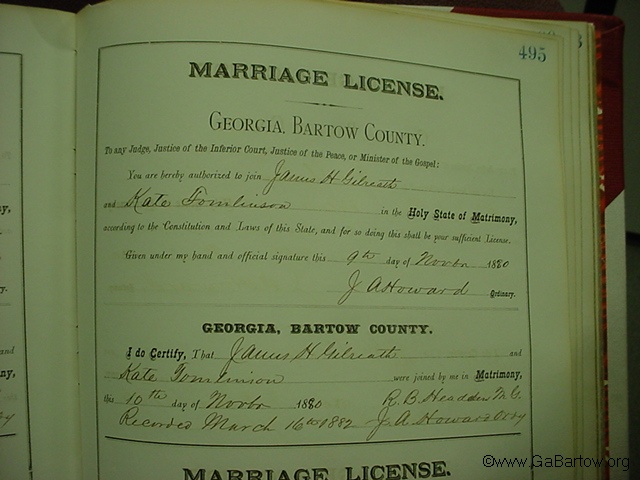 495
MARRIAGE LICENSE.
GEORGIA, BARTOW COUNTY.
To any Judge, Justice of the Inferior Court, Justice of the Peace, or Minister of the Gospel:
You are hereby authorized to join James H Gilreath
and Kate Tomlinson in the Holy State of Matrimony,
according to the Constitution and Laws of this State, and for so doing this shall be your sufficient License.
Given under my hand and official signature this 9th day of Novbr 1880
J A Howard Ordinary.
GEORGIA, BARTOW COUNTY.
I do Certify, That James H Gilreath and
Kate Tomlinson were joined by me in Matrimony,
this 10th day of Novbr 1880 R. B. Headden M.G.
Recorded March 16th 1882 J. A. Howard Ordy
MARRIAGE LICENSE.
©www.GaBartow.org